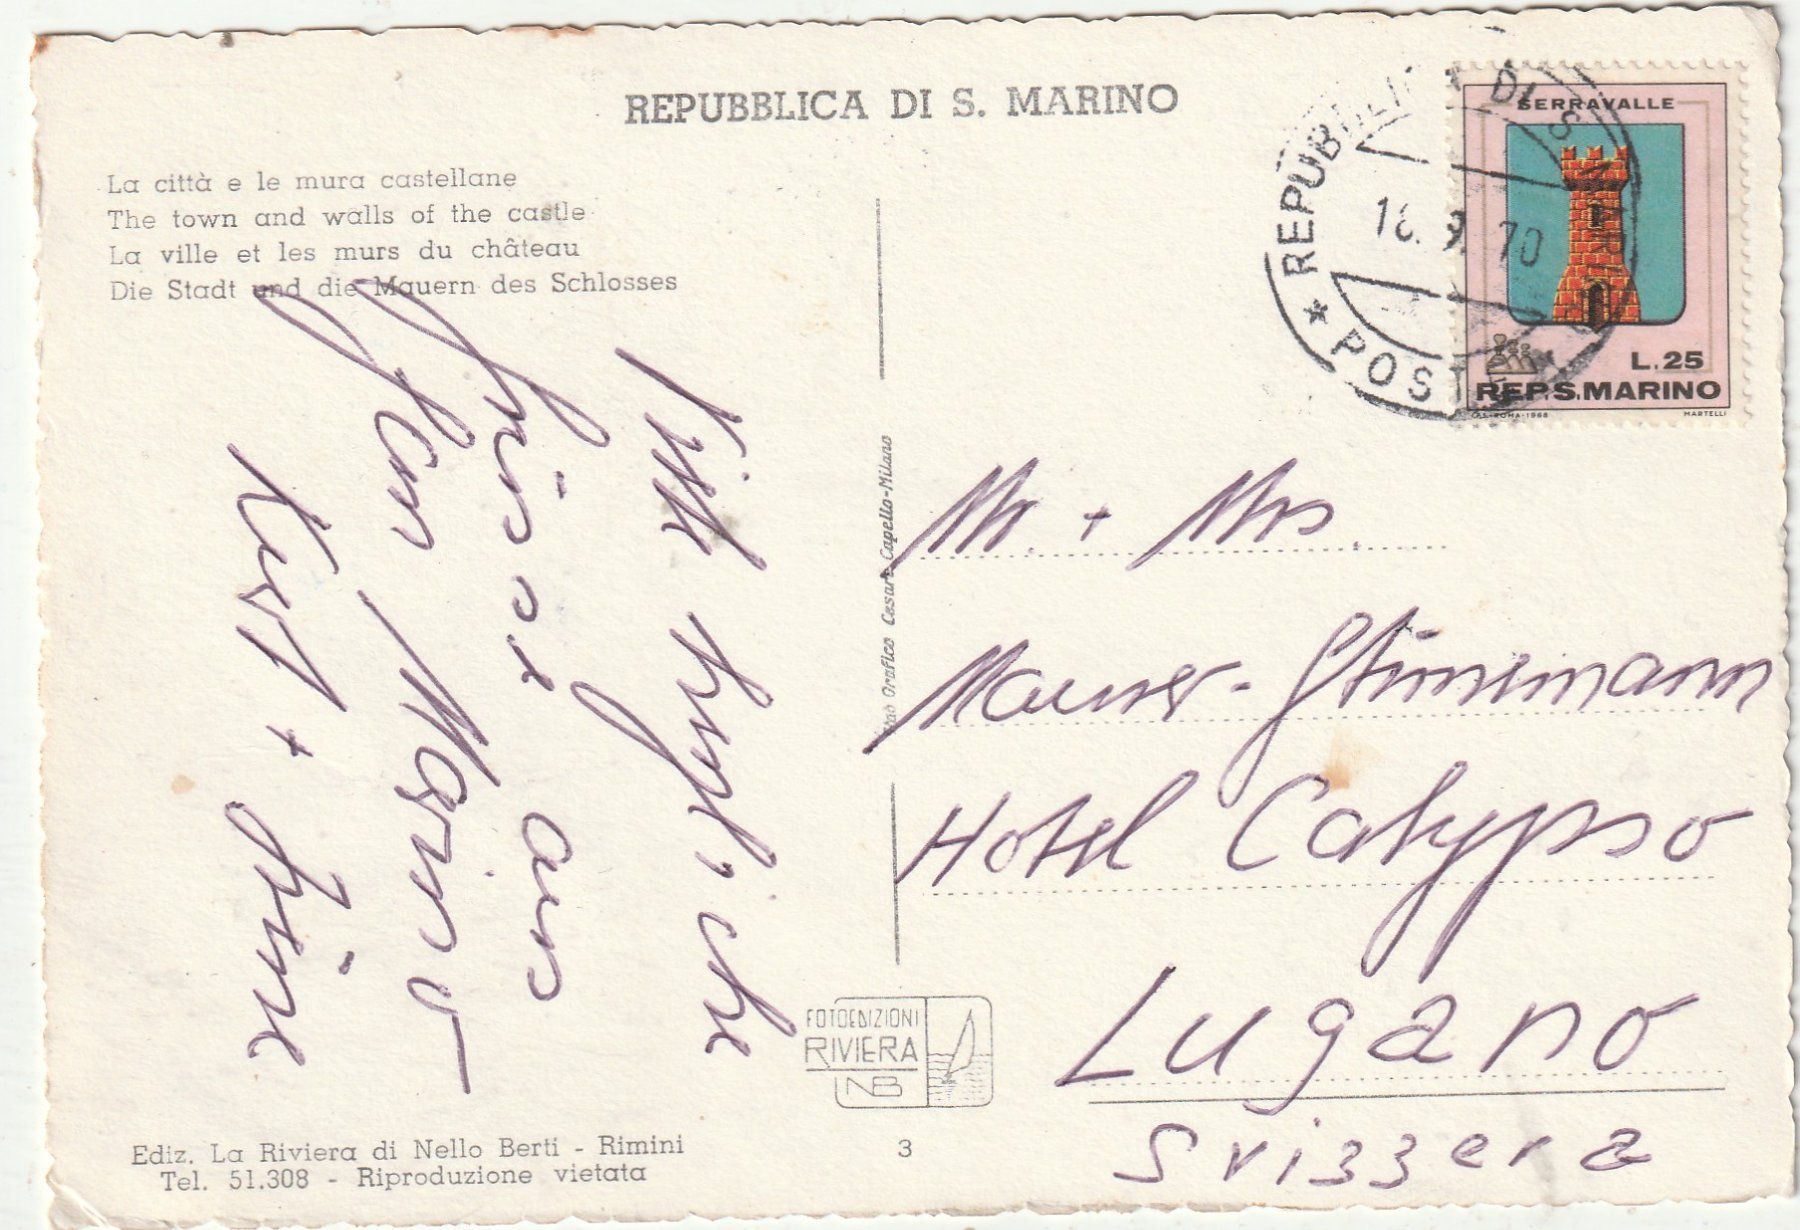 REPUBBLICA DI S. MARINO
La città e le mura castellane
The town and walls of the castle
La ville et les murs du château
Die Stadt und die Mauern des Schlosses
REPUBBLICA DI S. MARINO
POSTE
SERRAVALLE
L.25
REP.S.MARINO
ROMA-1968
MARTELLI
Cesare Capello-Milano
Mr. + Mrs.
Maurer-Stünsimann
Hotel Calypso
Lugano
Svizzera
Viele herzliche
Grüsse aus
San Marino
Kurt +
FOTOEDIZIONI
RIVIERA
NB
Ediz. La Riviera di Nello Berti - Rimini
Tel. 51.308 - Riproduzione vietata
3